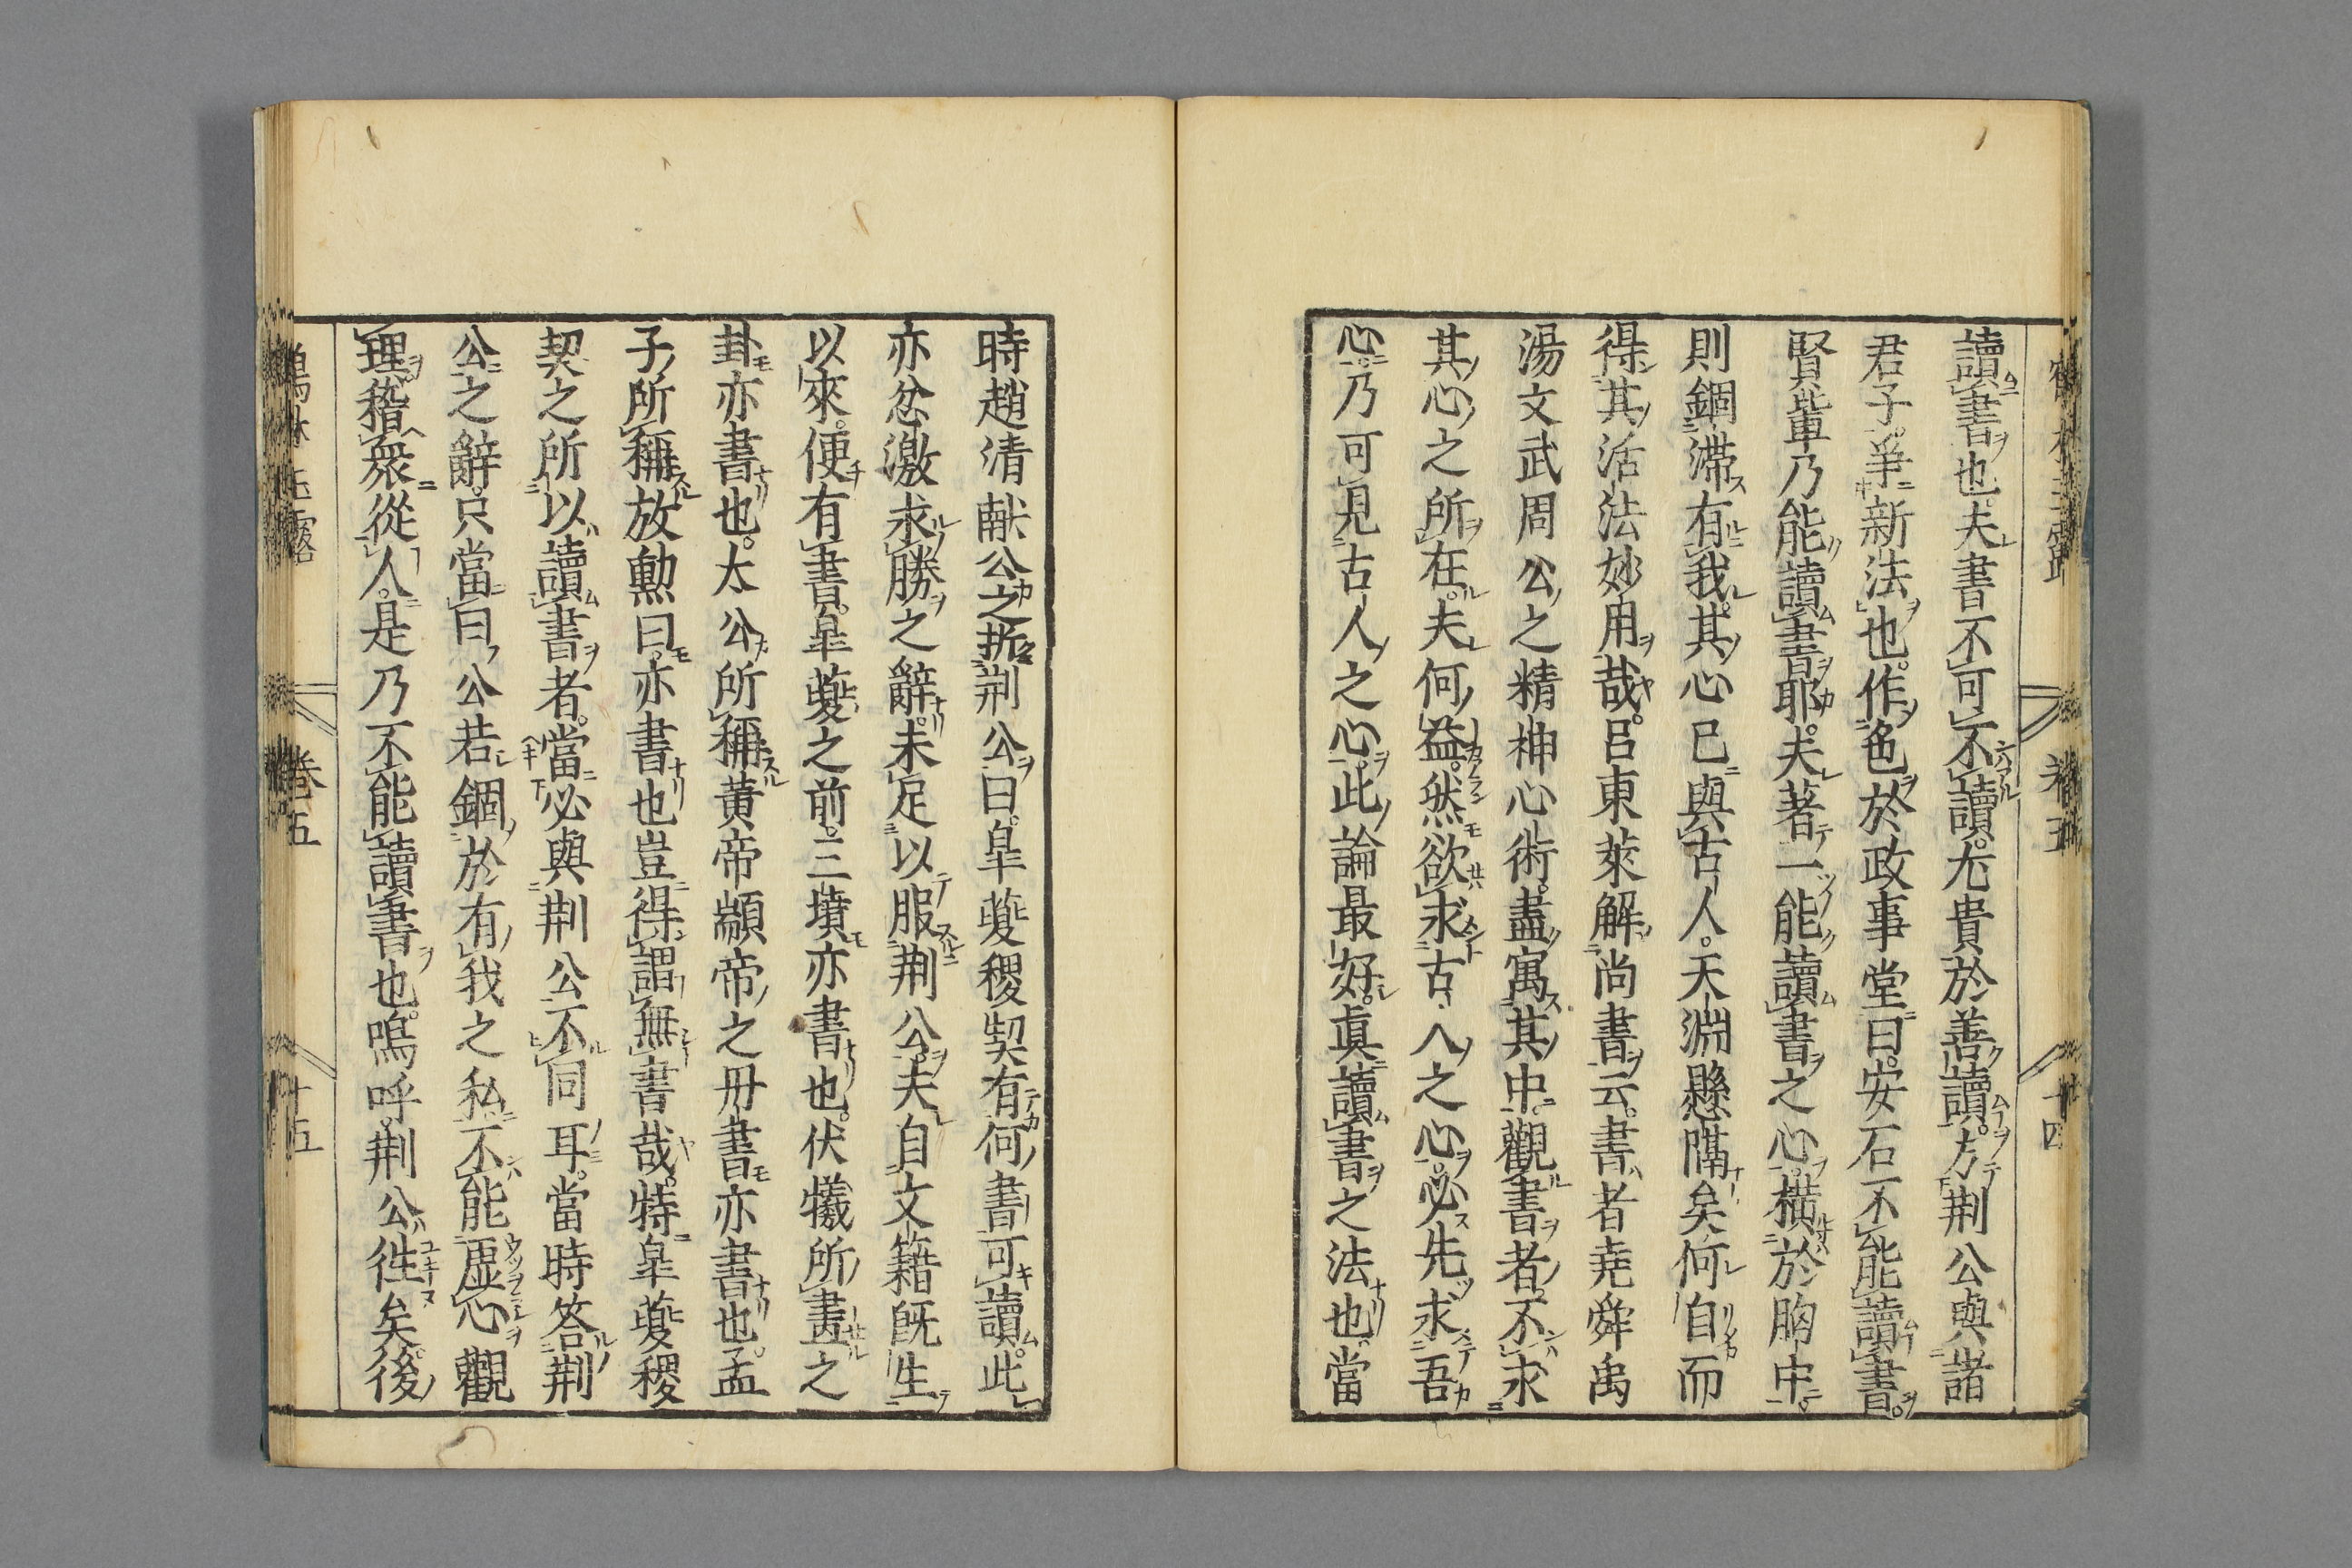 讀書也夫書不可不讀尤貴於善讀方荆公與諸
君子爭新法也作色於政事堂曰安石不能讀書
賢輩乃能讀書耶夫著一能讀書之心橫於胸中
則錮滯有我其心已與古人天淵懸隔矣何自而
得其活法妙用哉呂東萊解尚書云書者堯舜禹
湯文武周公之精神心術盡寓其中觀書者不求
其心之所在夫何益然欲求古人之心必先求吾
心乃可見古人之心此論最好眞讀書之法也當
時趙清献公之折荆公曰皐夔稷契有何書可讀此
亦忿激求勝之辭未足以服荆公夫自文籍既生
以來便有書皐夔之前三墳亦書也伏犧所畫之
卦亦書也太公所稱黄帝顓帝之丹書亦書也孟
子所稱放勲曰亦書也豈得謂無書哉特皐夔稷
契之所以讀書者當必與荆公不同耳當時答荆
公之辭只當曰公若錮於有我之私不能虛心觀
理稽衆從人是乃不能讀書也嗚呼荆公徃矣後
卷五
十五